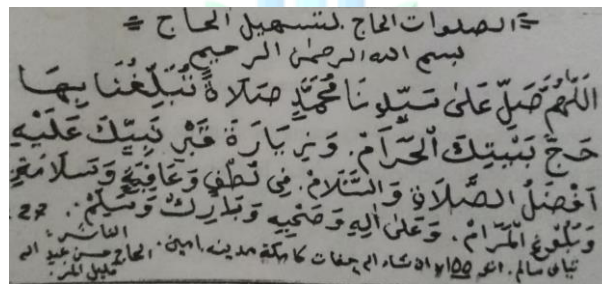 = الصلوات الحاج. لتسهيل الحاج =
بسم الله الرحمن الرحيم
اللهم صَلِّ عَلىٰ سَيِّدِنَا مُحَمَّدٍ صَلَاةً تُبَلِّغُنَا بِهَا
حَجَّ بَيْتِكَ الْحَرَامْ. وَزِيَارَةَ قَبْرِ نَبِيِّكَ عَلَيْهِ
اَفْضَلُ الصَّلَاةِ وَالسَّلَامْ. فِى لُطْفٍ وَعَافِيَةٍ وَسَلَامَةٍ
وَبُلُوْغِ الْمَرَامْ. وَعَلىٰ اٰلِهِ وَصَحْبِهِ وَبَارِكْ وَسَلِّمْ. ٢٧
الناشر:
سالم. ١٥٥ ان شاء الله مكة مدينه. امين. الحاج حسن عبد